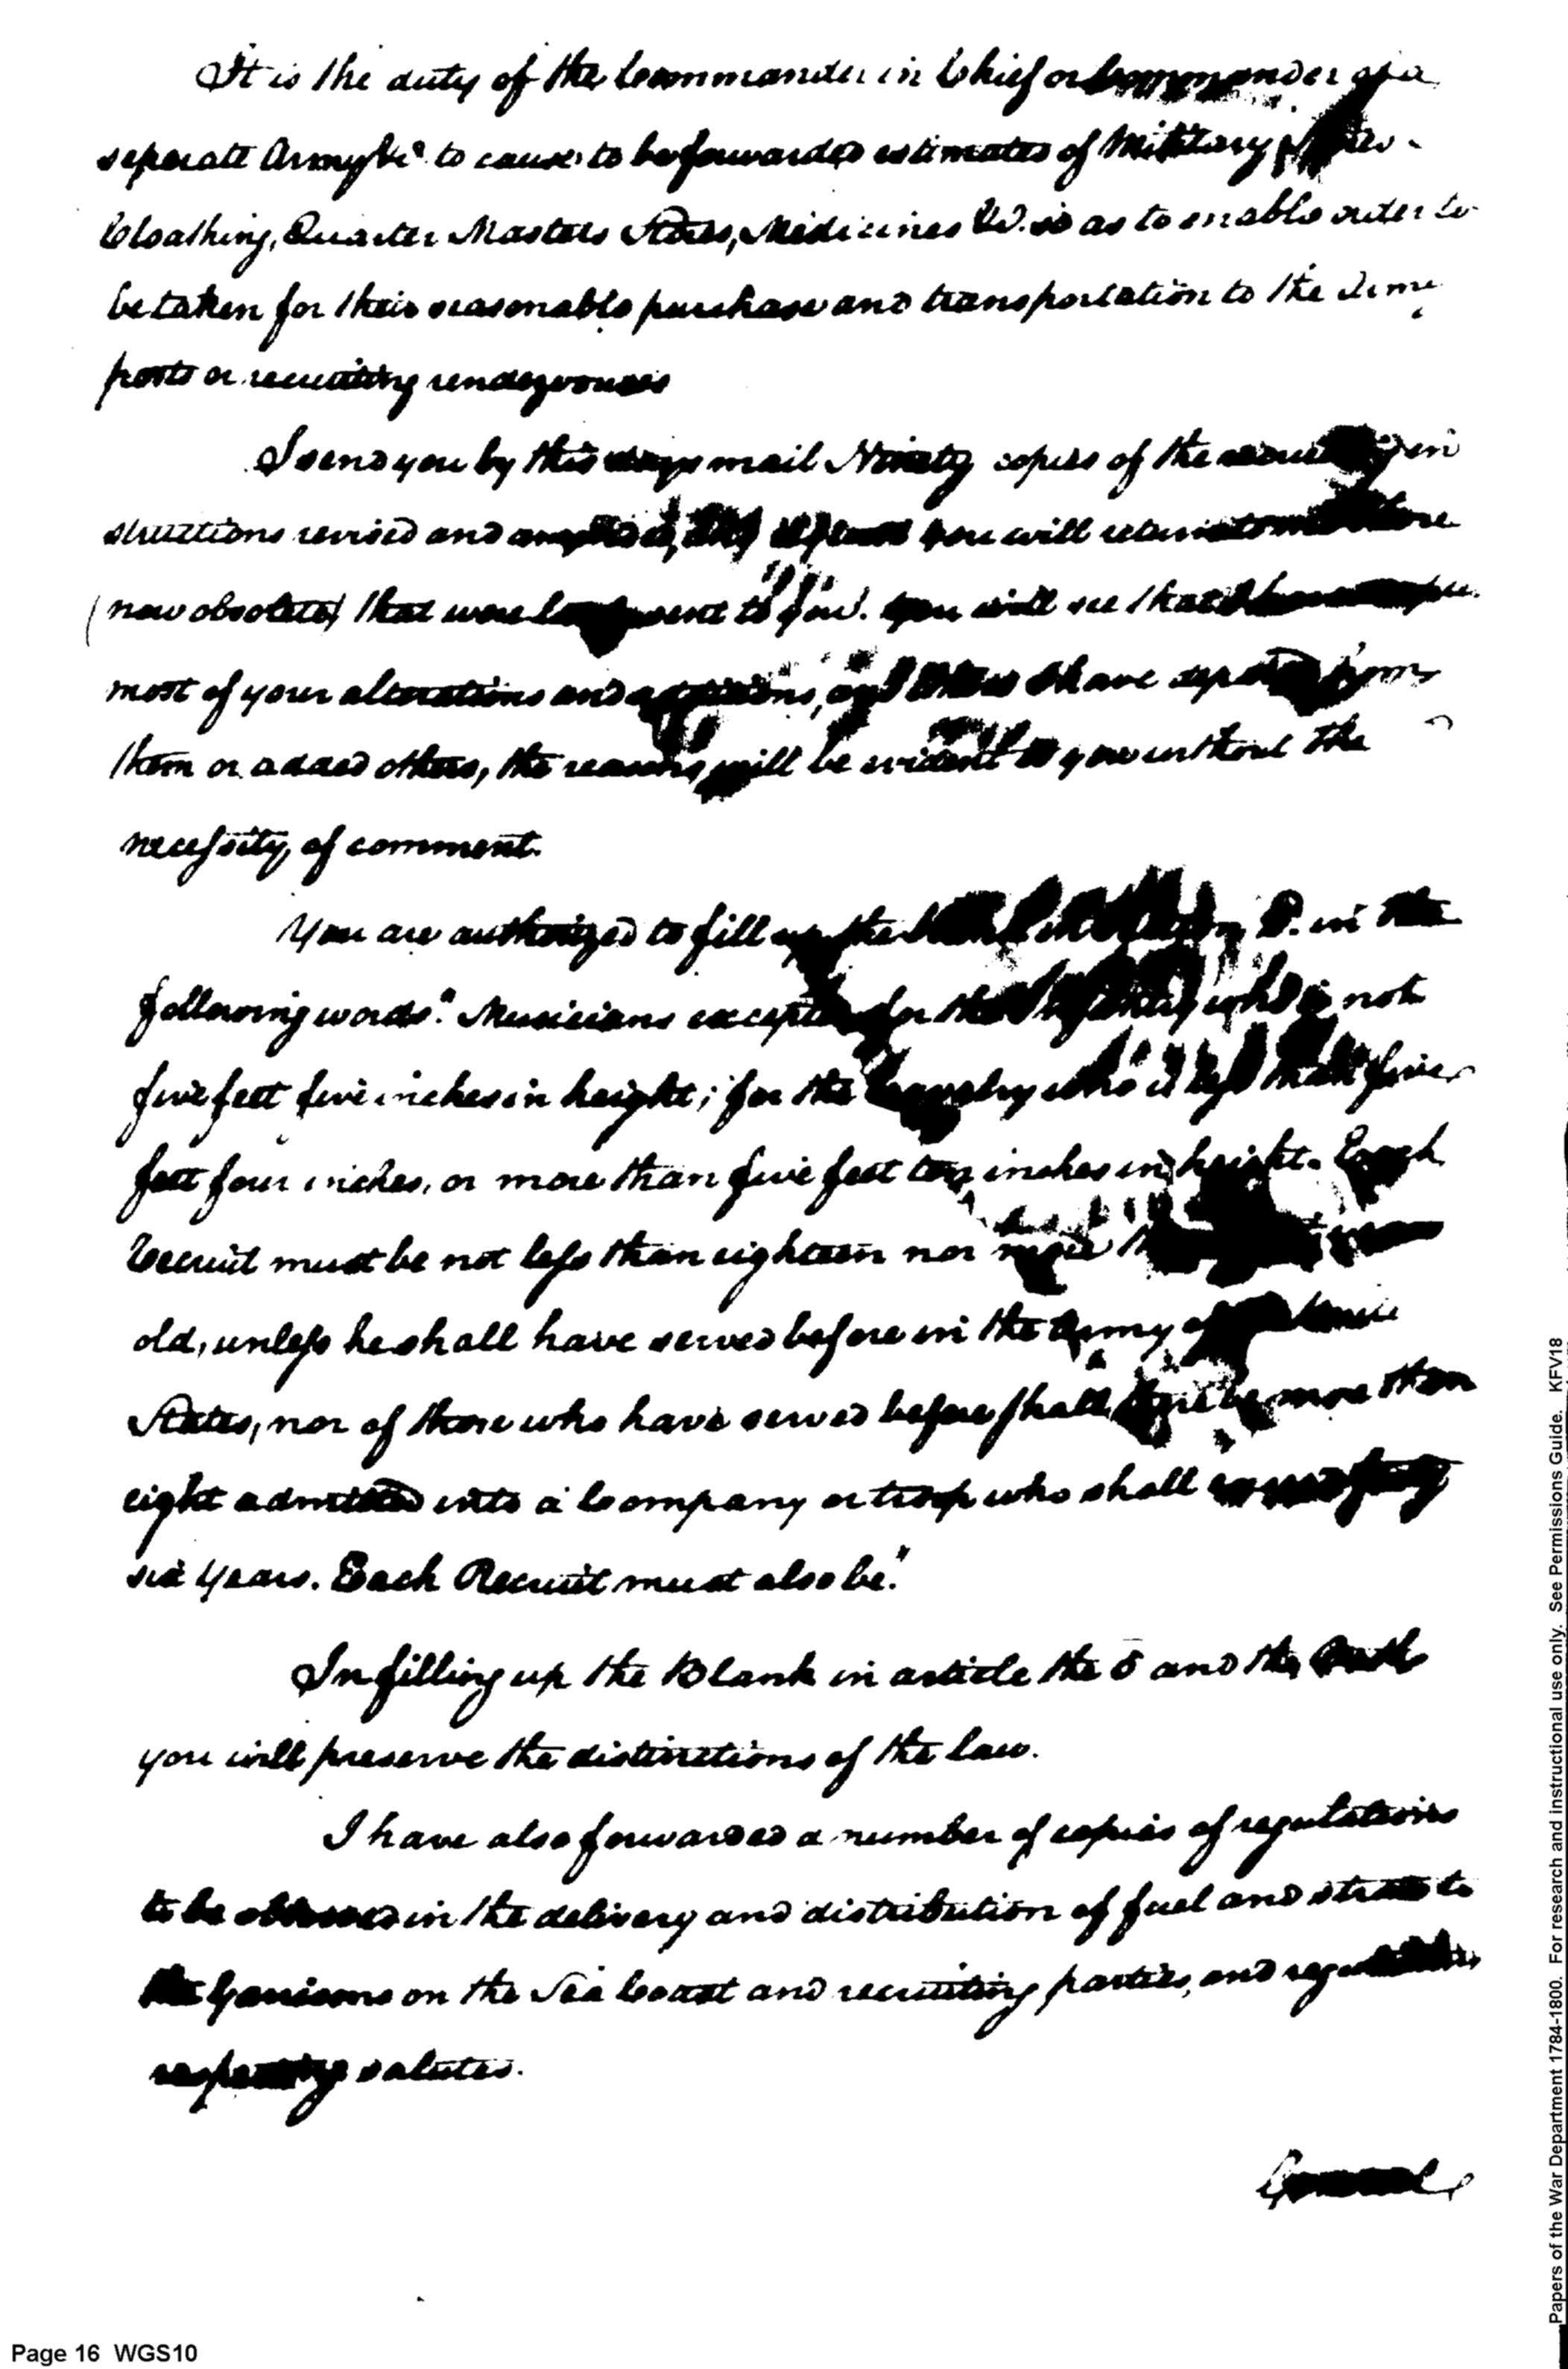 It is the duty of the Commander in Chief or Commander of a
seperate Army &c to cause to be forwarded estimates of Military
Cloathing, Quarter Masters Stores, Medicines &c. so as to enable order to
be taken for their seasonable purchase and transportation to the Army
posts or recruiting rendezvouses
I send you by this days mail Ninety copies of the recruiting in
structions revised and you will return to me those
(now obsolete) that were sent to you. You will see that I have
most of your alterations and additions, and I have from
them or added others, the reasons will be evident to you without the
necessity, of comment.
You are authorized to fill up the in the
following words." Musicians excepted for the who is not
five feet five inches in height; for the Cavalry who is less than five
feet four inches, or more than five feet ten inches in height. Each
Recruit must be not less than eighteen nor more
old, unless he shall have served before in the Army of
States, nor of those who have served before shall there be more than
eight admitted into a Company or troop who shall
six years. Each Recruit must also be."
In filling up the Blank in article the 5 and the
you will preserve the distinctions of the law.
I have also forwarded a number of copies of regulations
to be observed in the delivery and distribution of fuel and straw to
the Garrisons on the Sea Coast and recruiting parties, and regulations
respecting salutes.
General
Page 16 WGS10
Papers of the War Department 1784-1800. For research and instructional use only. See Permissions Guide. KFV18